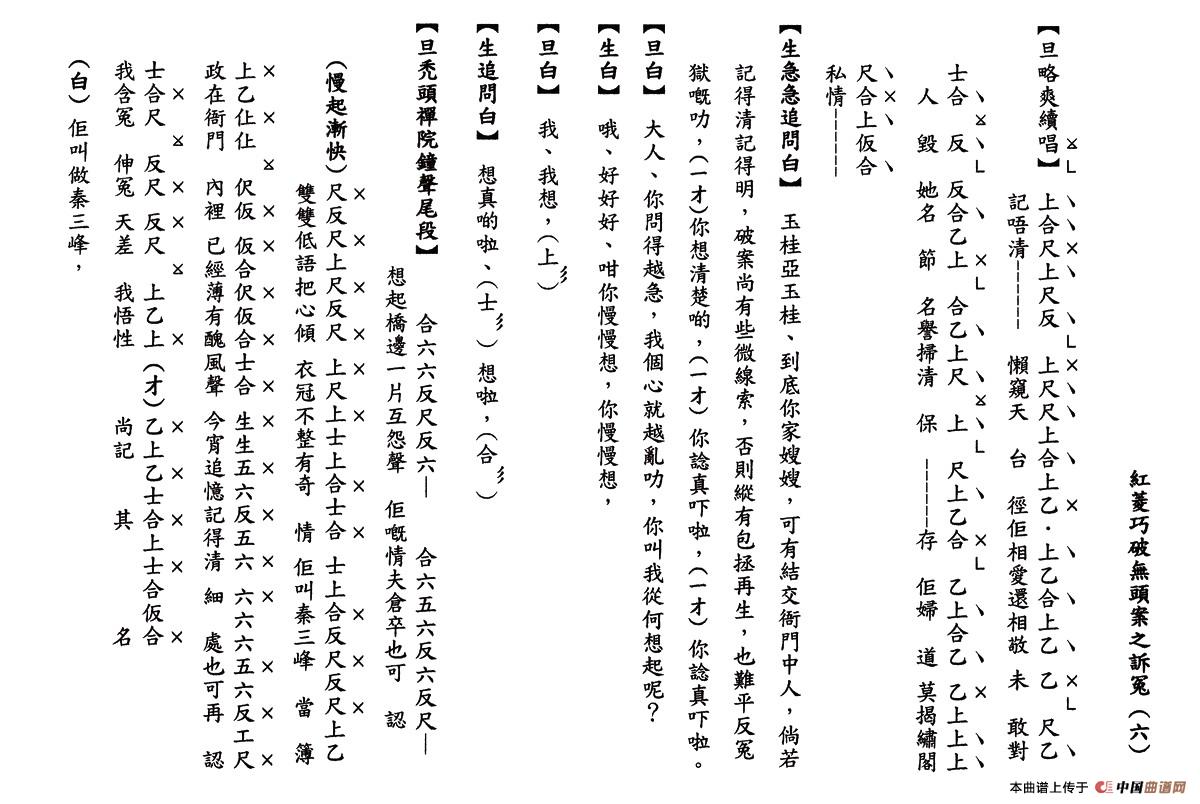 紅菱巧破無頭案之訴冤（六）
【旦略爽續唱】上合尺上尺反 上尺尺上合上乙·上乙合上乙 乙 尺乙
記唔清—————— 懶窺天 台 徑佢相愛還相敬 未 敢對
士合 反 反合乙上 合乙上尺 上 尺上乙合 乙上合乙 乙上上上
人 毀 她名 節 名譽掃清 保 ——————存 佢婦 道 莫揭繡閣
尺合上仮合
私情——————
【生急急追問白】 玉桂亞玉桂、到底你家嫂嫂，可有結交衙門中人，倘若
記得清記得明，破案尚有些微線索，否則縱有包拯再生，也難平反冤
獄嘅叻，（一才）你想清楚啲，（一才）你諗真吓啦，（一才）你諗真吓啦。
【旦白】 大人、你問得越急，我個心就越亂叻，你叫我從何想起呢？
【生白】 哦、好好好、咁你慢慢想，你慢慢想，
【旦白】 我、我想，（上彡）
【生追問白】 想真啲啦、（士彡）想啦，（合彡）
【旦禿頭禪院鐘聲尾段】 合六六反尺反六— 合六五六反六反尺—
想起橋邊一片互怨聲 佢嘅情夫倉卒也可 認
（慢起漸快）尺反尺上尺反尺 上尺上士上合士合 士上合反尺反尺上乙
雙雙低語把心傾 衣冠不整有奇 情 佢叫秦三峰 當 簿
上乙仩仩 伬仮 仮合伬仮合士合 生生五六反五六 六六六五六反工尺
政在衙門 內裡 已經薄有醜風聲 今宵追憶記得清 細 處也可再 認
士合尺 反尺 反尺 上乙上（才）乙上乙士合上士合仮合
我含冤 伸冤 天差 我悟性 尚記 其 名
（白）佢叫做秦三峰，
本曲谱上传于 中国曲谱网